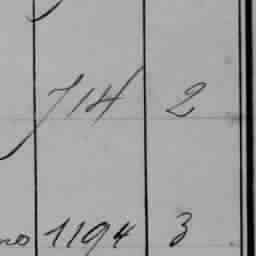 714 2
no 1194 3